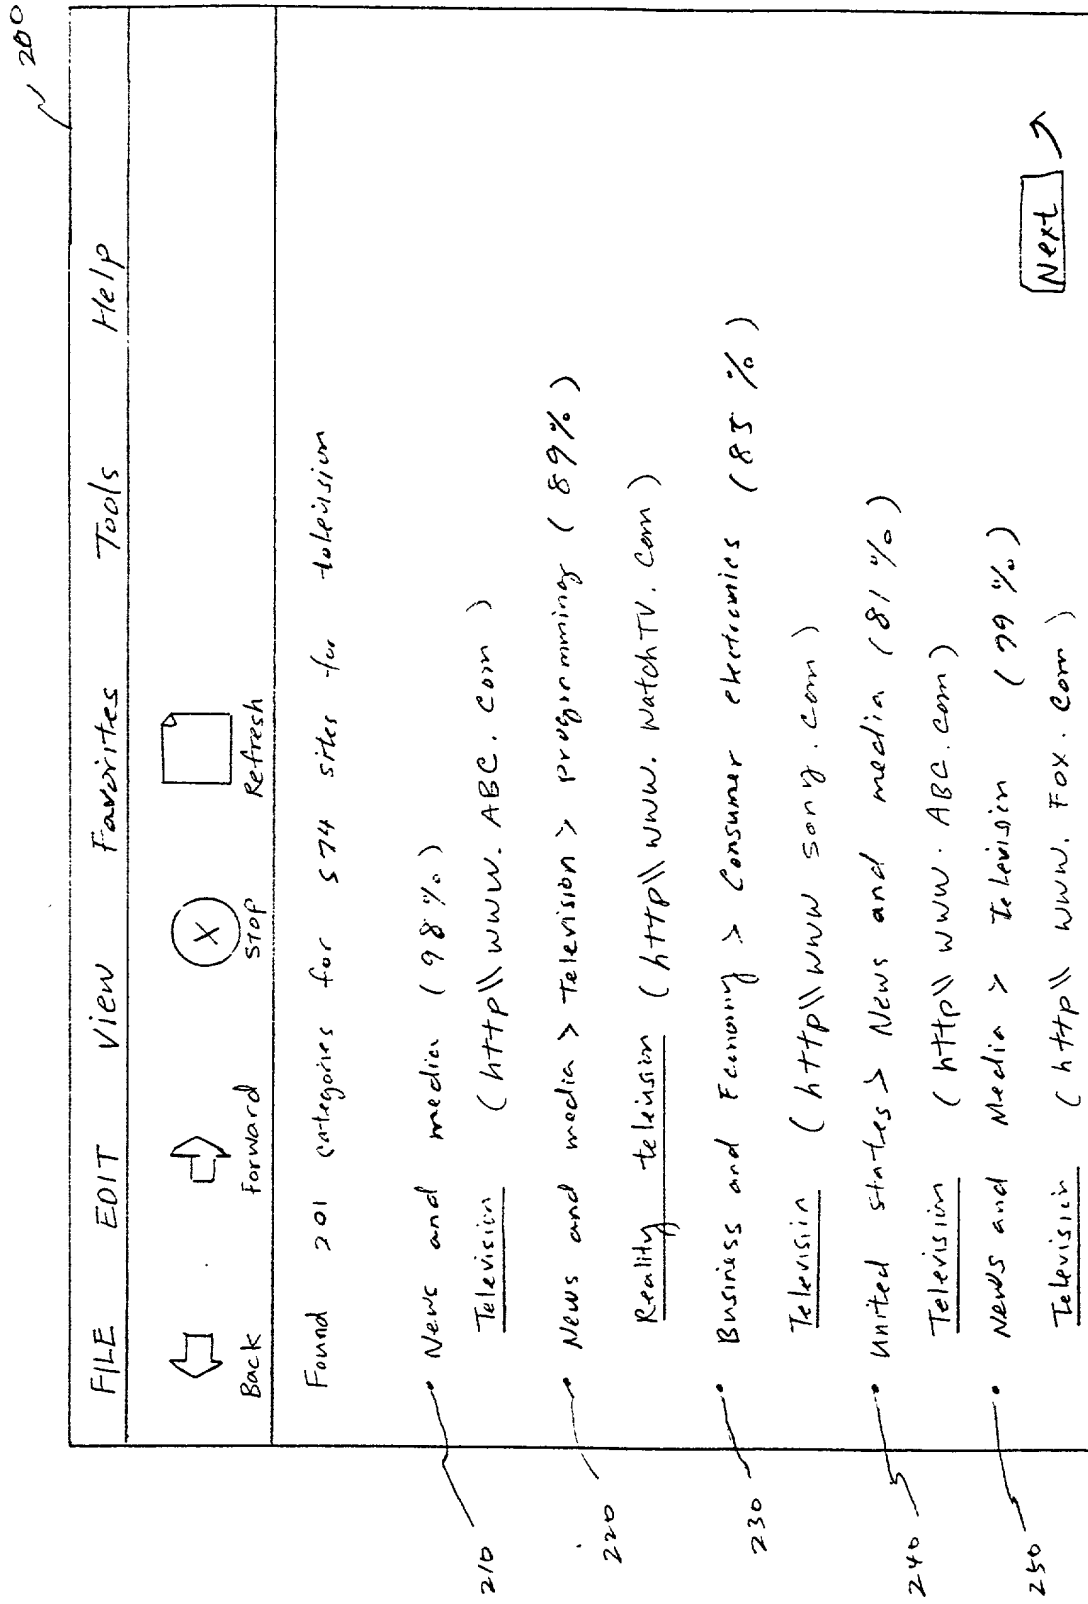 200
FILE EDIT View Favorites Tools Help
Back Forward STOP Refresh
Found 201 categories for 574 sites for television
210 • News and media (98%)
Television (http\\www.ABC.com)
220 • News and media > Television > programming (89%)
Reality television (http\\www.WatchTV.com)
230 • Business and Economy > Consumer electronics (85%)
Television (http\\www sony.com)
240 • United states > News and media (81%)
Television (http\\www.ABC.com)
250 • News and Media > Television (79%)
Television (http\\www.Fox.com)
Next